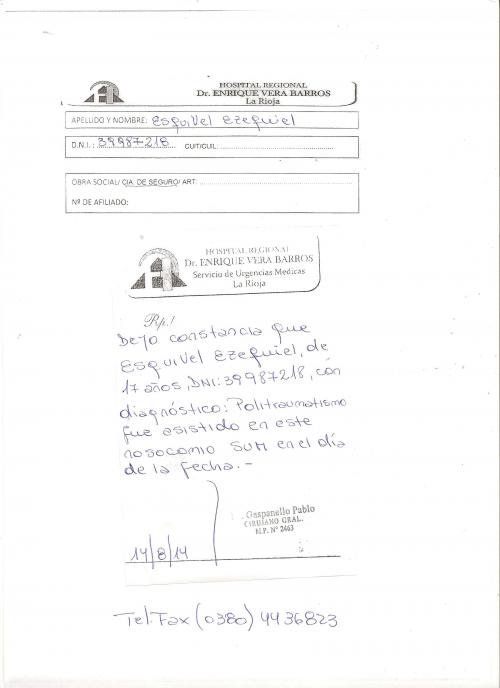 HOSPITAL REGIONAL
Dr. ENRIQUE VERA BARROS
La Rioja
APELLIDO Y NOMBRE: Esquivel Ezequiel
D.N.I.: 39987218 CUIT/CUIL:
OBRA SOCIAL/ CIA. DE SEGURO/ ART:
Nº DE AFILIADO:
HOSPITAL REGIONAL
Dr. ENRIQUE VERA BARROS
Servicio de Urgencias Medicas
La Rioja
Rp.!
Dejo constancia que
Esquivel Ezequiel, de
17 años, DNI: 39987218, con
diagnóstico: Politraumatismo
fue asistido en este
nosocomio SUM en el día
de la fecha.-
Gaspanello Pablo
CIRUJANO GRAL.
M.P. Nº 2463
14/8/14
Tel: Fax (0380) 4436823